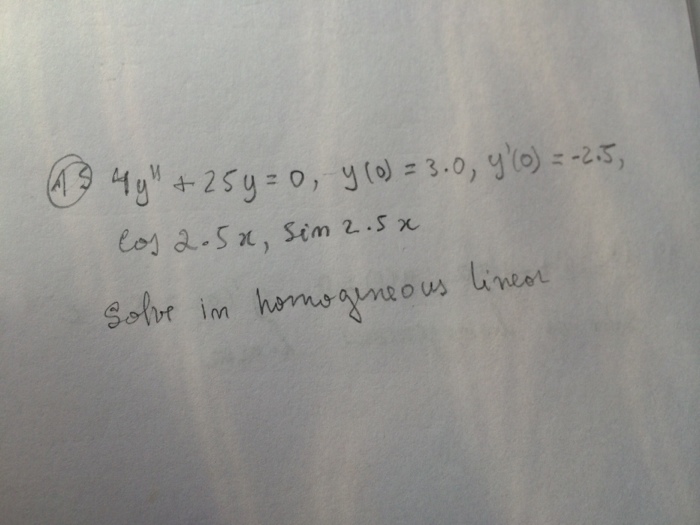 15 4y" + 25y = 0, y(0) = 3.0, y'(0) = -2.5,
cos 2.5x, sin 2.5x
Solve in homogeneous linear